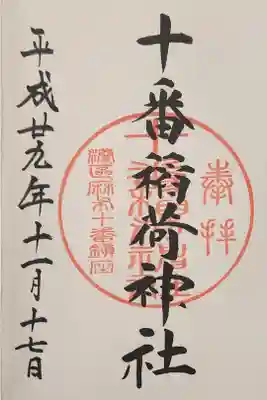 奉拝
十番稲荷神社
港区麻布十番鎮座
平成廿九年十一月十七日